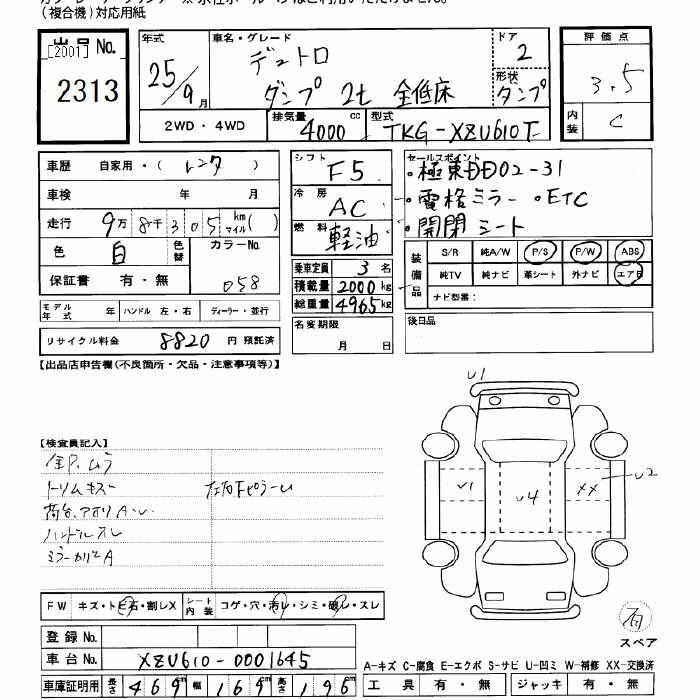 (複合機)対応用紙
出品No. 年式 車名・グレード ドア 評価点
[2001] デュトロ 2
2313 25/9月 ダンプ 2t 全低床 形状 ダンプ 3.5
2WD・4WD 排気量 4000 cc 型式 TKG-XZU610T 内装 C
車歴 自家用・( レンタ ) シフト F5 セールスポイント
・極東DD02-31
車検 年 月 冷房 AC ・電格ミラー ・ETC
走行 9万8千305 km マイル ( ) 燃料 軽油 ・開閉シート
色 白 色替 カラーNo. 058
保証書 有・無
乗車定員 3名
積載量 2000kg
総重量 4965kg
装備品 S/R 純A/W P/S P/W ABS
純TV 純ナビ 革シート 外ナビ エアB
ナビ型番:
モデル年式 年 ハンドル 左・右 ディーラー・並行
リサイクル料金 8820 円 預託済
名変期限 月 日
後日品
【出品店申告欄(不良箇所・欠品・注意事項等)】
U1
【検査員記入】
全P.ムラ
トリムキズ
ハンドルスレ
ミラーカバーA
U1 U4 XX U2
FW キズ・トビ石・割レX シート内装 コゲ・穴・汚レ・シミ・破レ・スレ
登録No.
車台No. XZU610-0001645
車庫証明用 長さ 469cm 幅 169cm 高さ 196cm
スペア
A-キズ C-腐食 E-エクボ S-サビ U-凹ミ W-補修 XX-交換済
工具 有・無 ジャッキ 有・無